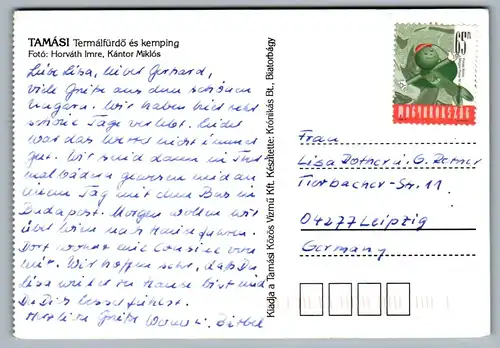 TAMÁSI Termálfürdő és kemping
Fotó: Horváth Imre, Kántor Miklós
Liebe Lisa, lieber Gerhard,
viele Grüße aus dem schönen
Ungarn. Wir haben hier sehr
schöne Tage verlebt. Leider
war das Wetter nicht immer
gut. Wir sind dann in Ther
malbädern gewesen und an
einem Tag mit dem Bus in
Budapest. Morgen wollen wir
über Wien nach Hause fahren.
Dort wohnt eine Cousine von
mir. Wir hoffen sehr, daß Du
Lisa wieder zu Hause bist und
Du Dich besser fühlst.
Herzliche Grüße
Kiadja a Tamási Közös Vízmű Kft. Készítette: Krónikás Bt., Biatorbágy
65 Ft
MAGYARORSZÁG
Frau
Lisa u. G.
-Str. 11
04277 Leipzig
Germany